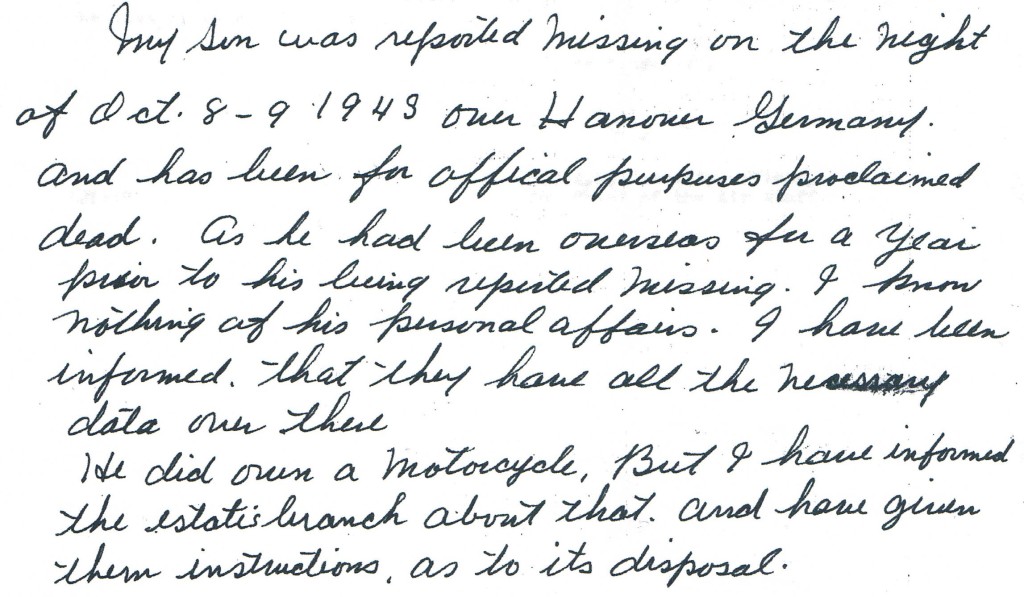 My son was reported missing on the night
of Oct. 8-9 1943 over Hanover Germany.
and has been for offical purpuses proclaimed
dead. As he had been overseas for a year
prior to his being reported missing. I know
nothing of his personal affairs. I have been
informed. that they have all the necessary
data over there
He did own a motorcycle, But I have informed
the estates branch about that. and have given
them instructions, as to its disposal.